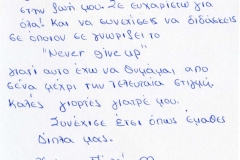 στην ζωή μου. Σε ευχαριστώ για
όλα! Και να συνεχίσεις να διδάσκεις
σε όποιον σε γνωρίζει το
"Never give up"
γιατί αυτό έχω να θυμάμαι απο
σένα μέχρι την τελευταία στιγμή.
Καλές γιορτές γιατρέ μου.
Συνέχισε έτσι όπως έμαθες
δίπλα μας.